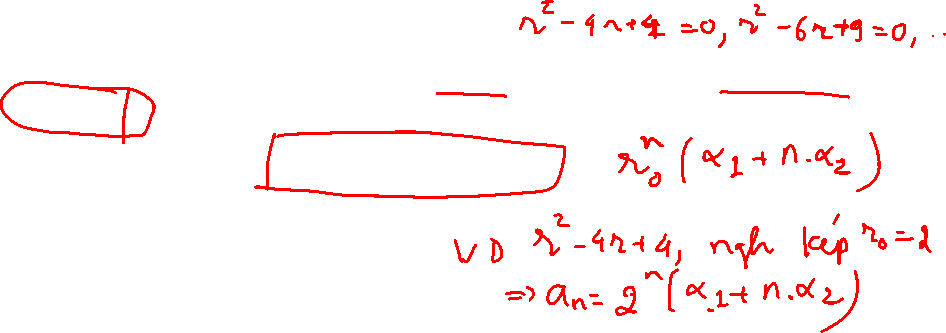 r² - 4r + 4 = 0, r² - 6r + 9 = 0, ..
r₀ⁿ (α₁ + n.α₂)
VD r² - 4r + 4, ngh kép r₀ = 2
=> aₙ = 2ⁿ (α₁ + n.α₂)